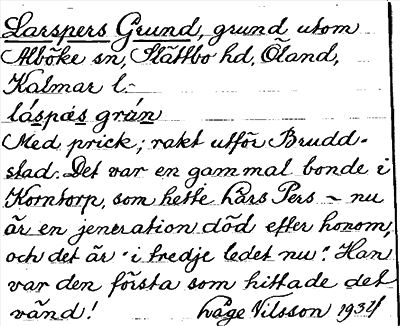 Larspers Grund, grund utom
Alböke sn, Slättbo hd, Öland,
Kalmar l.
láspæs grán
Med prick; rakt utför Brudd-
stad. Det var en gammal bonde i
Korntorp, som hette Lars Pers – nu
är en jeneration död efter honom,
och det är "i tredje ledet nu". Han
var den första som hittade det
vänd! Låge Nilsson 1934